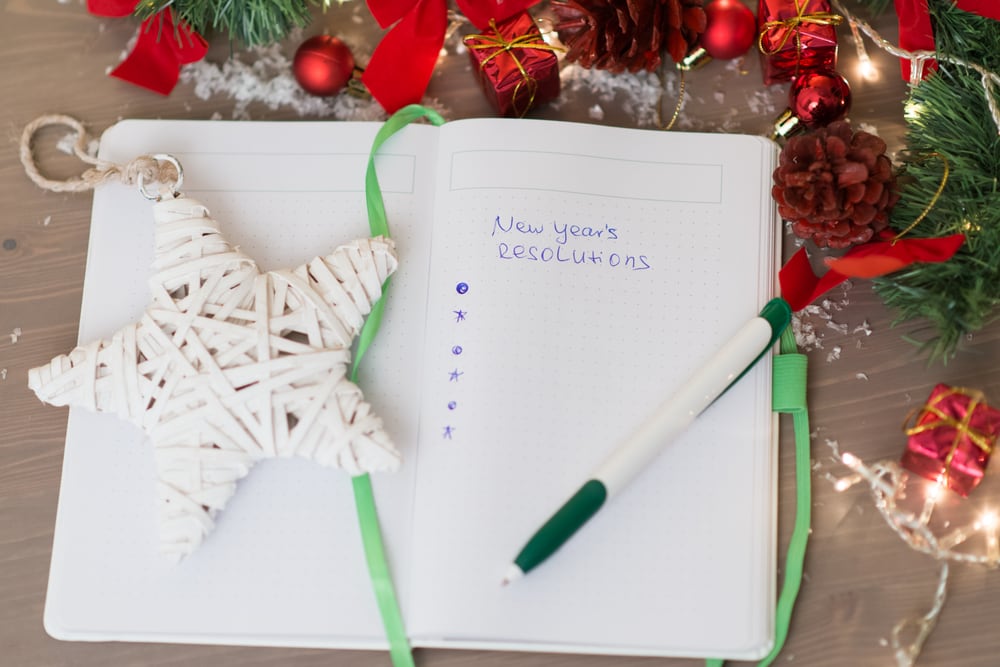 New year's
Resolutions